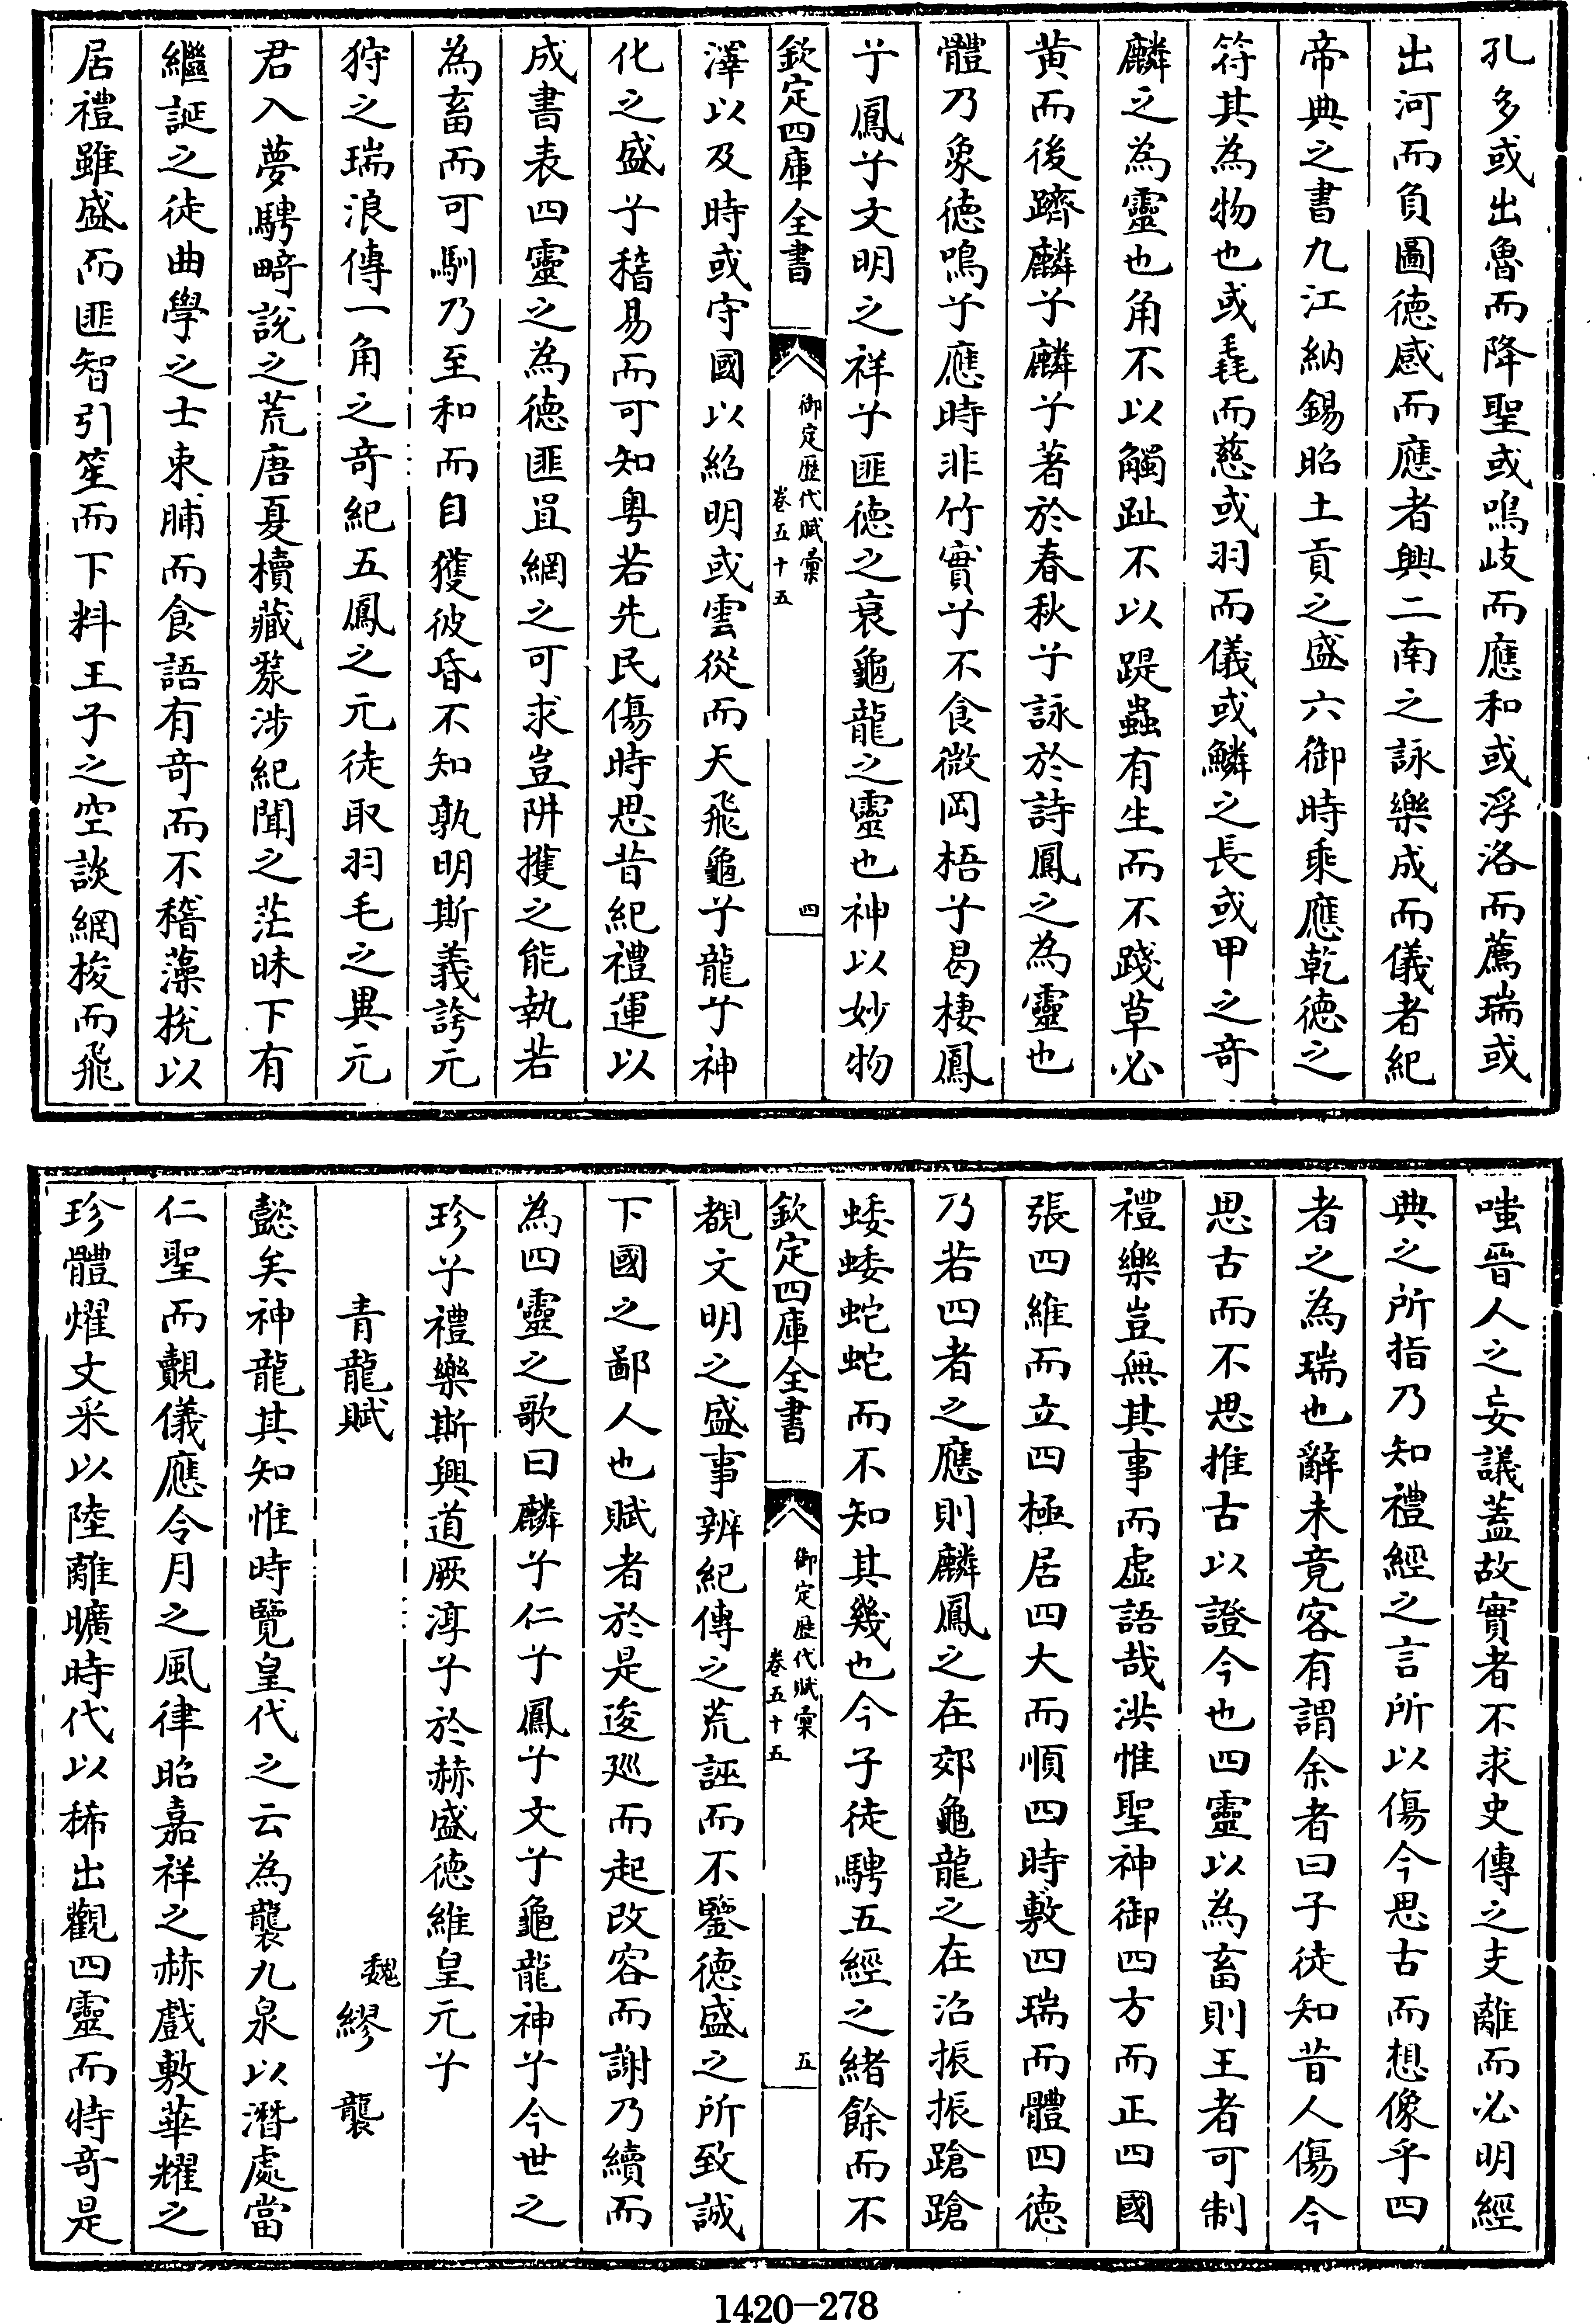 孔多或出魯而降聖或鳴岐而應和或浮洛而薦瑞或
出河而負圖德感而應者興二南之詠樂成而儀者紀
帝典之書九江納錫昭土貢之盛六御時乘應乾德之
符其為物也或毳而慈或羽而儀或鱗之長或甲之奇
麟之為靈也角不以觸趾不以踶蟲有生而不踐草必
黄而後躋麟兮麟兮著於春秋兮詠於詩鳳之為靈也
體乃象德鳴兮應時非竹實兮不食微岡梧兮曷棲鳳
兮鳳兮文明之祥兮匪德之衰龜龍之靈也神以妙物
欽定四庫全書
御定歴代賦彙
卷五十五
四
澤以及時或守國以紹明或雲從而天飛龜兮龍兮神
化之盛兮稽易而可知粤若先民傷時思昔紀禮運以
成書表四靈之為德匪罝網之可求豈阱擭之能執若
為畜而可馴乃至和而自獲彼昏不知孰明斯義誇元
狩之瑞浪傳一角之竒紀五鳳之元徒取羽毛之異元
君入夢騁畸說之荒唐夏櫝藏漦涉紀聞之茫昧下有
繼誕之徒曲學之士束脯而食語有竒而不稽藻梲以
居禮雖盛而匪智引笙而下料王子之空談網梭而飛
嗤晉人之妄議蓋故實者不求史傳之支離而必明經
典之所指乃知禮經之言所以傷今思古而想像乎四
者之為瑞也辭未竟客有謂余者曰子徒知昔人傷今
思古而不思推古以證今也四靈以為畜則王者可制
禮樂豈無其事而虚語哉洪惟聖神御四方而正四國
張四維而立四極居四大而順四時敷四瑞而體四德
乃若四者之應則麟鳳之在郊龜龍之在沼振振蹌蹌
蜲蜲蛇蛇而不知其幾也今子徒騁五經之緒餘而不
欽定四庫全書
御定歴代賦彙
卷五十五
五
覩文明之盛事辨紀傳之荒誣而不鑒德盛之所致誠
下國之鄙人也賦者於是逡廵而起改容而謝乃續而
為四靈之歌曰麟兮仁兮鳳兮文兮龜龍神兮今世之
珍兮禮樂斯興道厥淳兮於赫盛德維皇元兮
青龍賦
魏繆襲
懿矣神龍其知惟時覽皇代之云為襲九泉以潛處當
仁聖而觀儀應令月之風律昭嘉祥之赫戲敷華耀之
珍體燿文采以陸離曠時代以稀出觀四靈而特竒是
1420-278